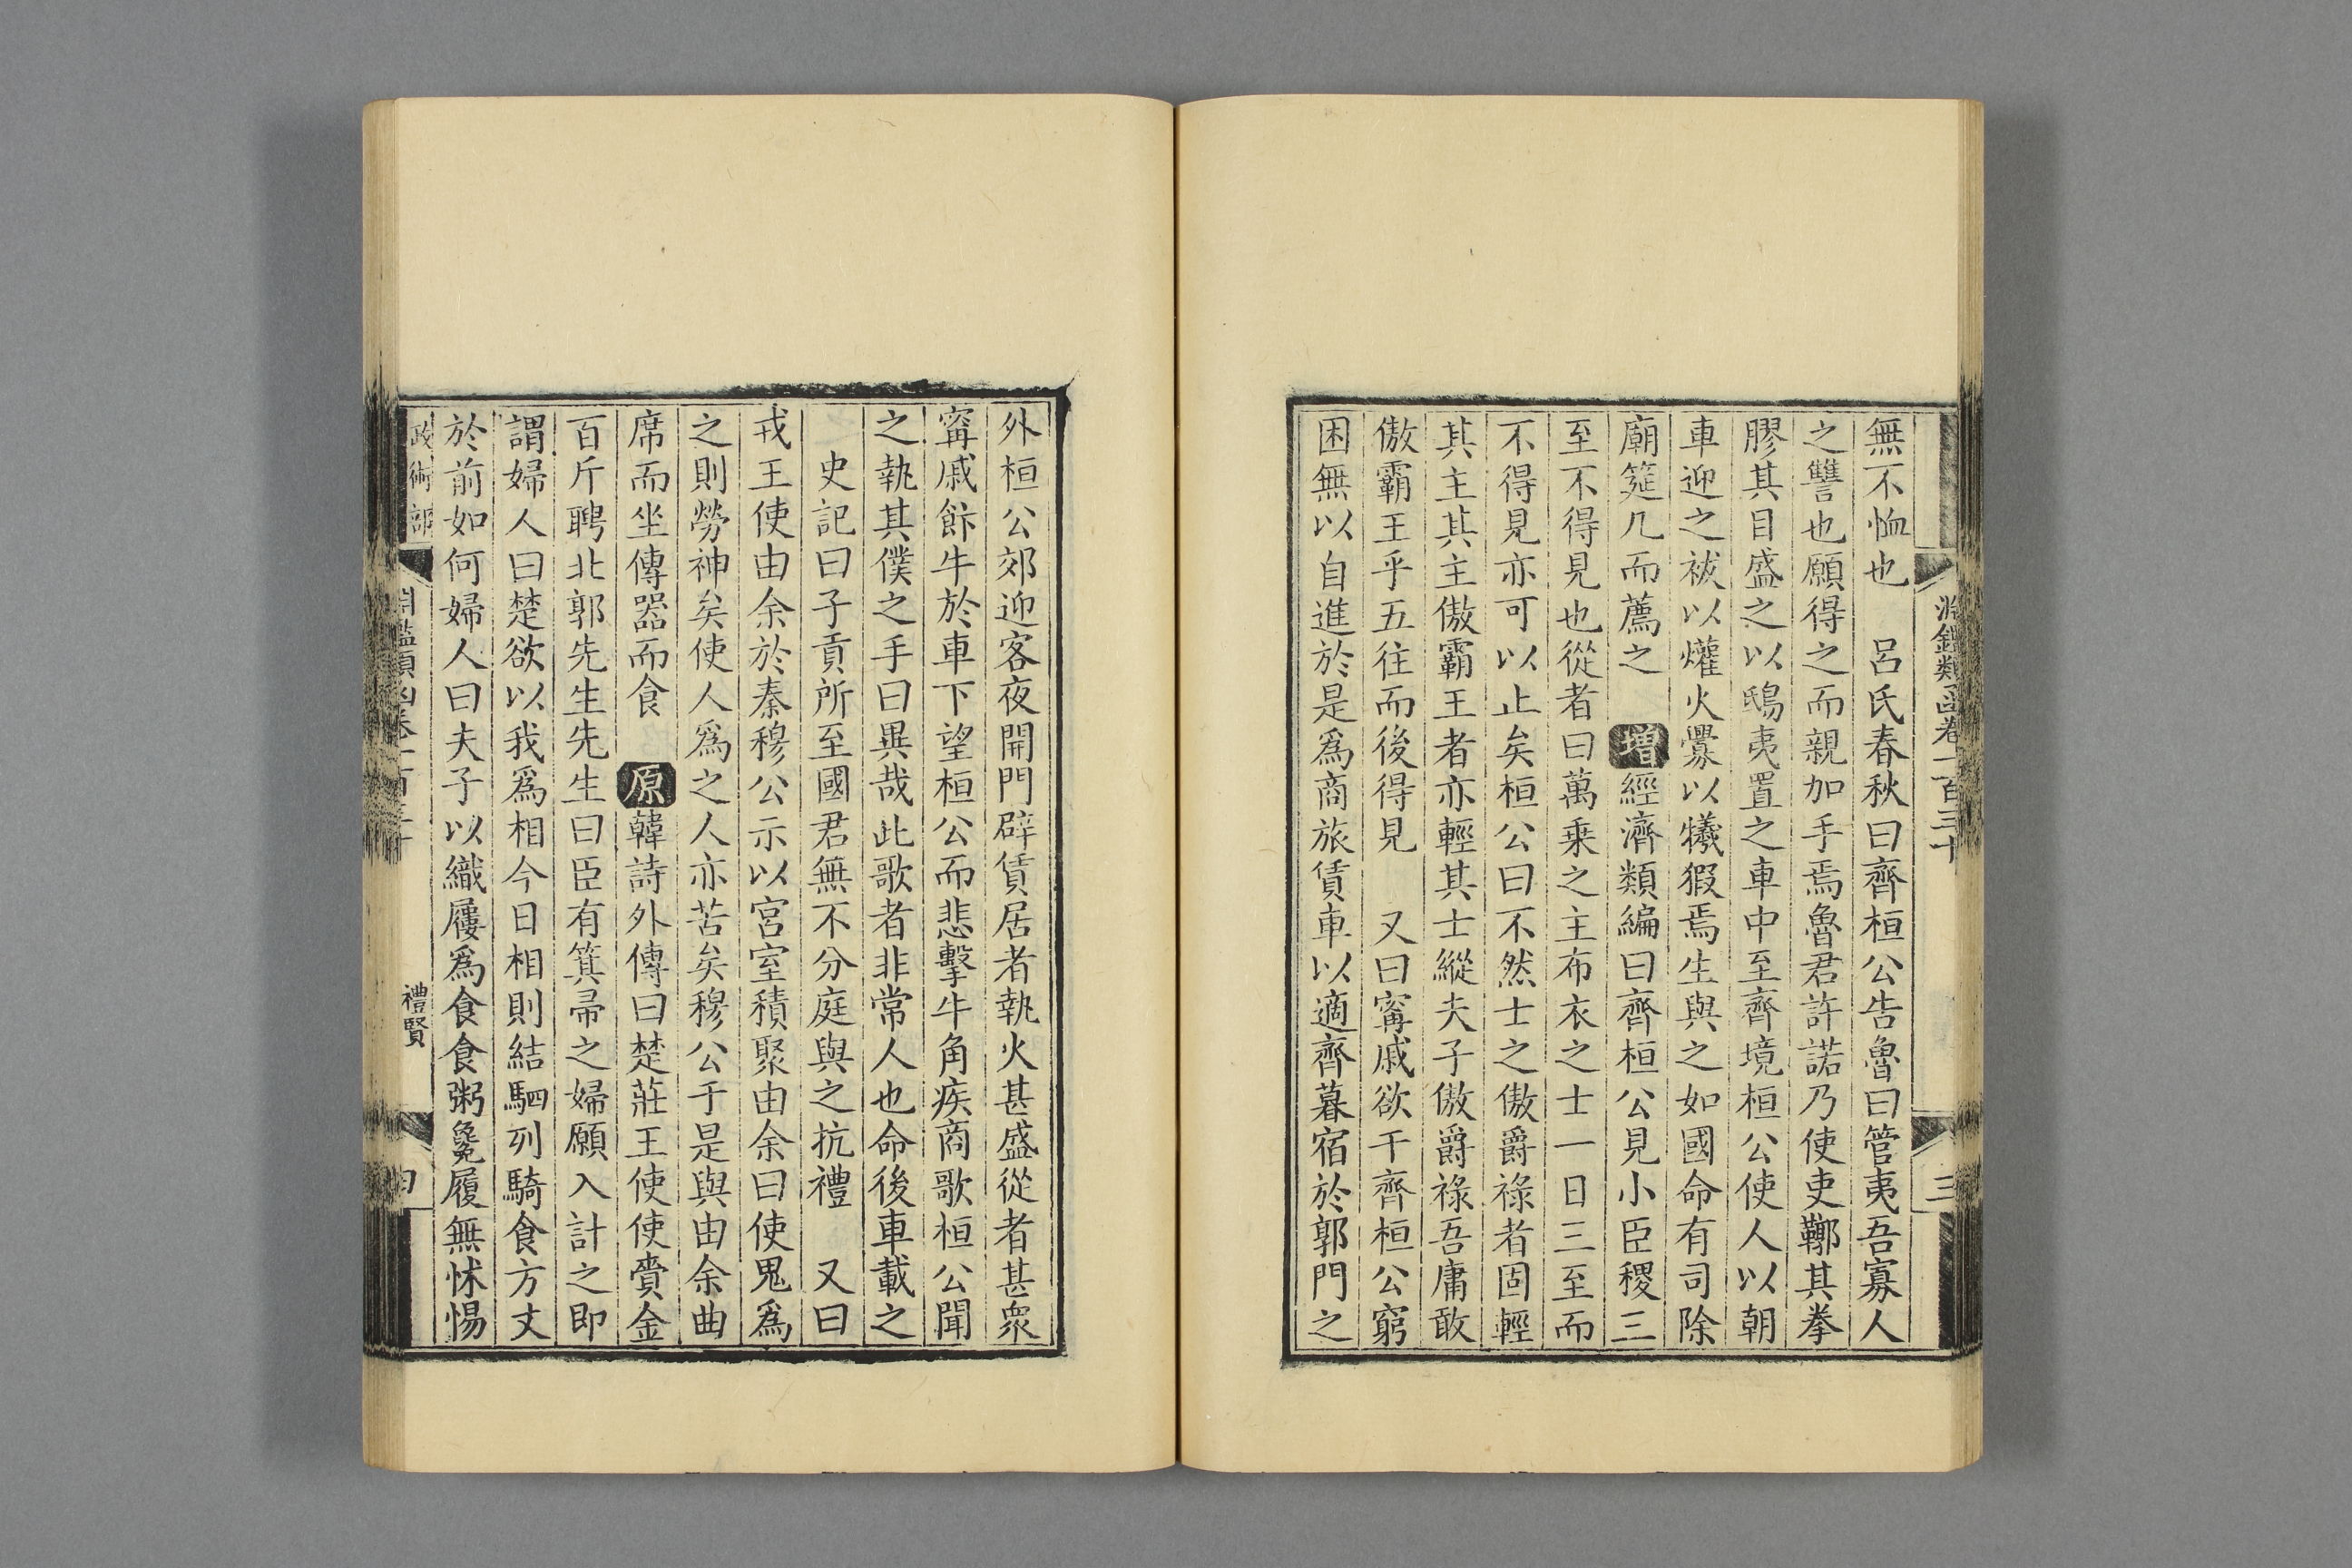 無不恤也　呂氏春秋曰齊桓公告魯曰管夷吾寡人
之讐也願得之而親加手焉魯君許諾乃使吏鞹其拳
膠其目盛之以鴟夷置之車中至齊境桓公使人以朝
車迎之祓以爟火釁以犧猳焉生與之如國命有司除
廟筵几而薦之　增經濟類編曰齊桓公見小臣稷三
至不得見也從者曰萬乗之主布衣之士一日三至而
不得見亦可以止矣桓公曰不然士之傲爵祿者固輕
其主其主傲霸王者亦輕其士縱夫子傲爵祿吾庸敢
傲霸王乎五往而後得見　又曰甯戚欲干齊桓公窮
困無以自進於是爲商旅賃車以適齊暮宿於郭門之
外桓公郊迎客夜開門辟賃居者執火甚盛從者甚衆
甯戚飰牛於車下望桓公而悲擊牛角疾商歌桓公聞
之執其僕之手曰異哉此歌者非常人也命後車載之
史記曰子貢所至國君無不分庭與之抗禮　又曰
戎王使由余於秦穆公示以宮室積聚由余曰使鬼爲
之則勞神矣使人爲之人亦苦矣穆公于是與由余曲
席而坐傳器而食　原韓詩外傳曰楚莊王使使賫金
百斤聘北郭先生先生曰臣有箕帚之婦願入計之即
謂婦人曰楚欲以我爲相今日相則結駟列騎食方丈
於前如何婦人曰夫子以織屨爲食食粥毚履無怵惕
政術部
禮賢